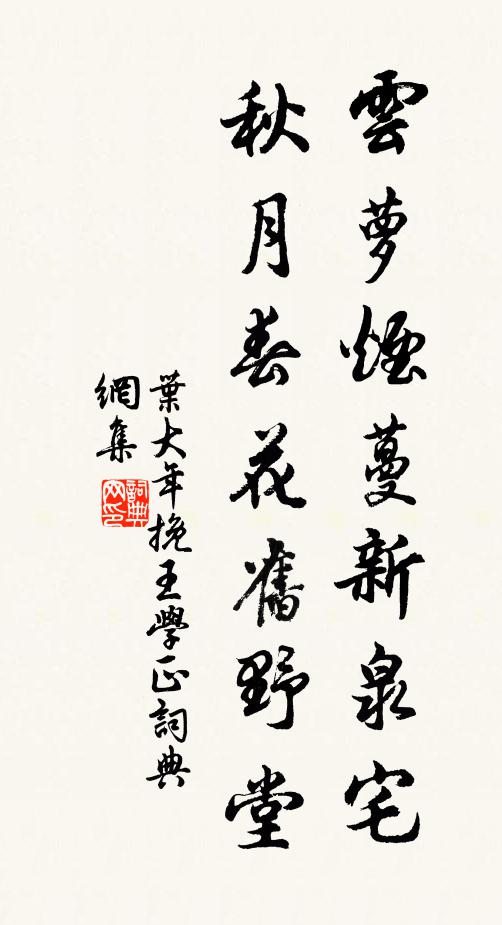 雲蘿煙蔓新泉宅
秋月春花舊野堂
葉大年挽王學正詞典
網集
詞典網印